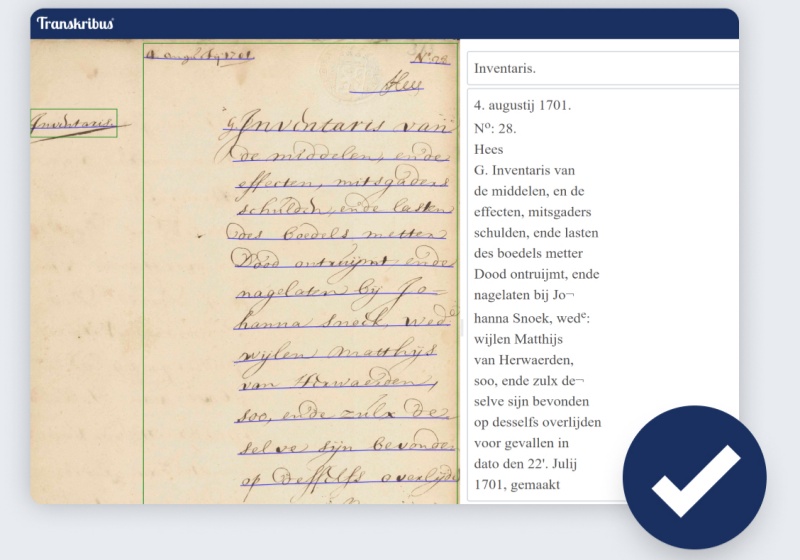 Transkribus
4 augustij 1701
N° 28.
Hees
Inventaris.
G Inventaris van
de middelen, ende
effecten, mitsgaders
schulden, ende lasten
des boedels metter
Dood ontruijmt ende
nagelaten bij Jo=
hanna Snoek, wed^e
wijlen Matthijs
van Herwaerden,
soo, ende zulx de
selve sijn bevonden
op desselfs overlijde
Inventaris.
4. augustij 1701.
Nº: 28.
Hees
G. Inventaris van
de middelen, en de
effecten, mitsgaders
schulden, ende lasten
des boedels metter
Dood ontruijmt, ende
nagelaten bij Jo¬
hanna Snoek, wedᵉ:
wijlen Matthijs
van Herwaerden,
soo, ende zulx de¬
selve sijn bevonden
op desselfs overlijden
voor gevallen in
dato den 22'. Julij
1701, gemaakt